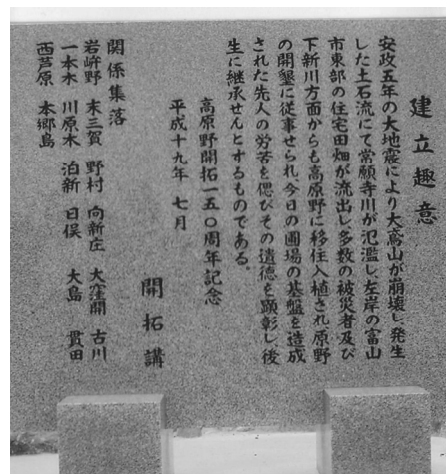 建立趣意
安政五年の大地震により大鳶山が崩壊し発生
した土石流にて常願寺川が氾濫し左岸の富山
市東部の住宅田畑が流出し多数の被災者及び
下新川方面からも高原野に移住入植され原野
の開墾に従事せられ、今日の圃場の基盤を造成
された先人の労苦を偲びその遺徳を顕彰し後
生に継承せんとするものである。
高原野開拓一五〇周年記念
平成十九年 七月
開拓講
関係集落
岩峅野 末三賀 野村 向新庄 大窪開 古川
一本木 川原木 泊新 日俣 大島 貫田
西芦原 本郷島